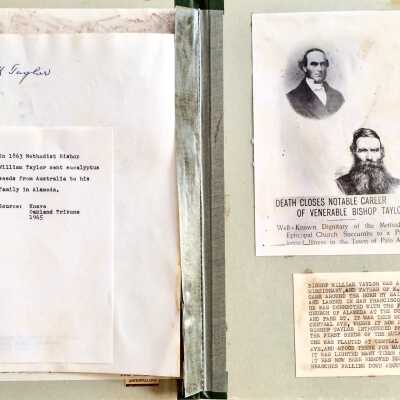 Taylor
In 1863 Methodist Bishop
William Taylor sent eucalyptus
seeds from Australia to his
family in Alameda.
Source: Knave
Oakland Tribune
1965
DEATH CLOSES NOTABLE CAREER
OF VENERABLE BISHOP TAYLO
Well-Known Dignitary of the Method
Episcopal Church Succumbs to a P
Illness in the Town of Palo A
BISHOP WILLIAM TAYLOR WAS A
MISSIONARY, AND FATHER OF E.
CAME AROUND THE HORN BY SAI
AND LANDED IN SAN FRANCISCO
HE WAS CONNECTED WITH THE F
CHURCH OF ALAMEDA AT THE CO
AND PARK ST. IT WAS THEN MO
CENTRAL AVE, WHERE IT NOW
BISHOP TAYLOR INTRODUCED
THE FIRST SEEDS OF THE EUCA
ONE WAS PLANTED AT CENTRAL
AVE, AND STOOD THERE FOR MA
IT WAS LIGHTED MANY TIMES
IT HAS NOW BEEN REMOVED BEC
BRANCHES FALLING DOWN